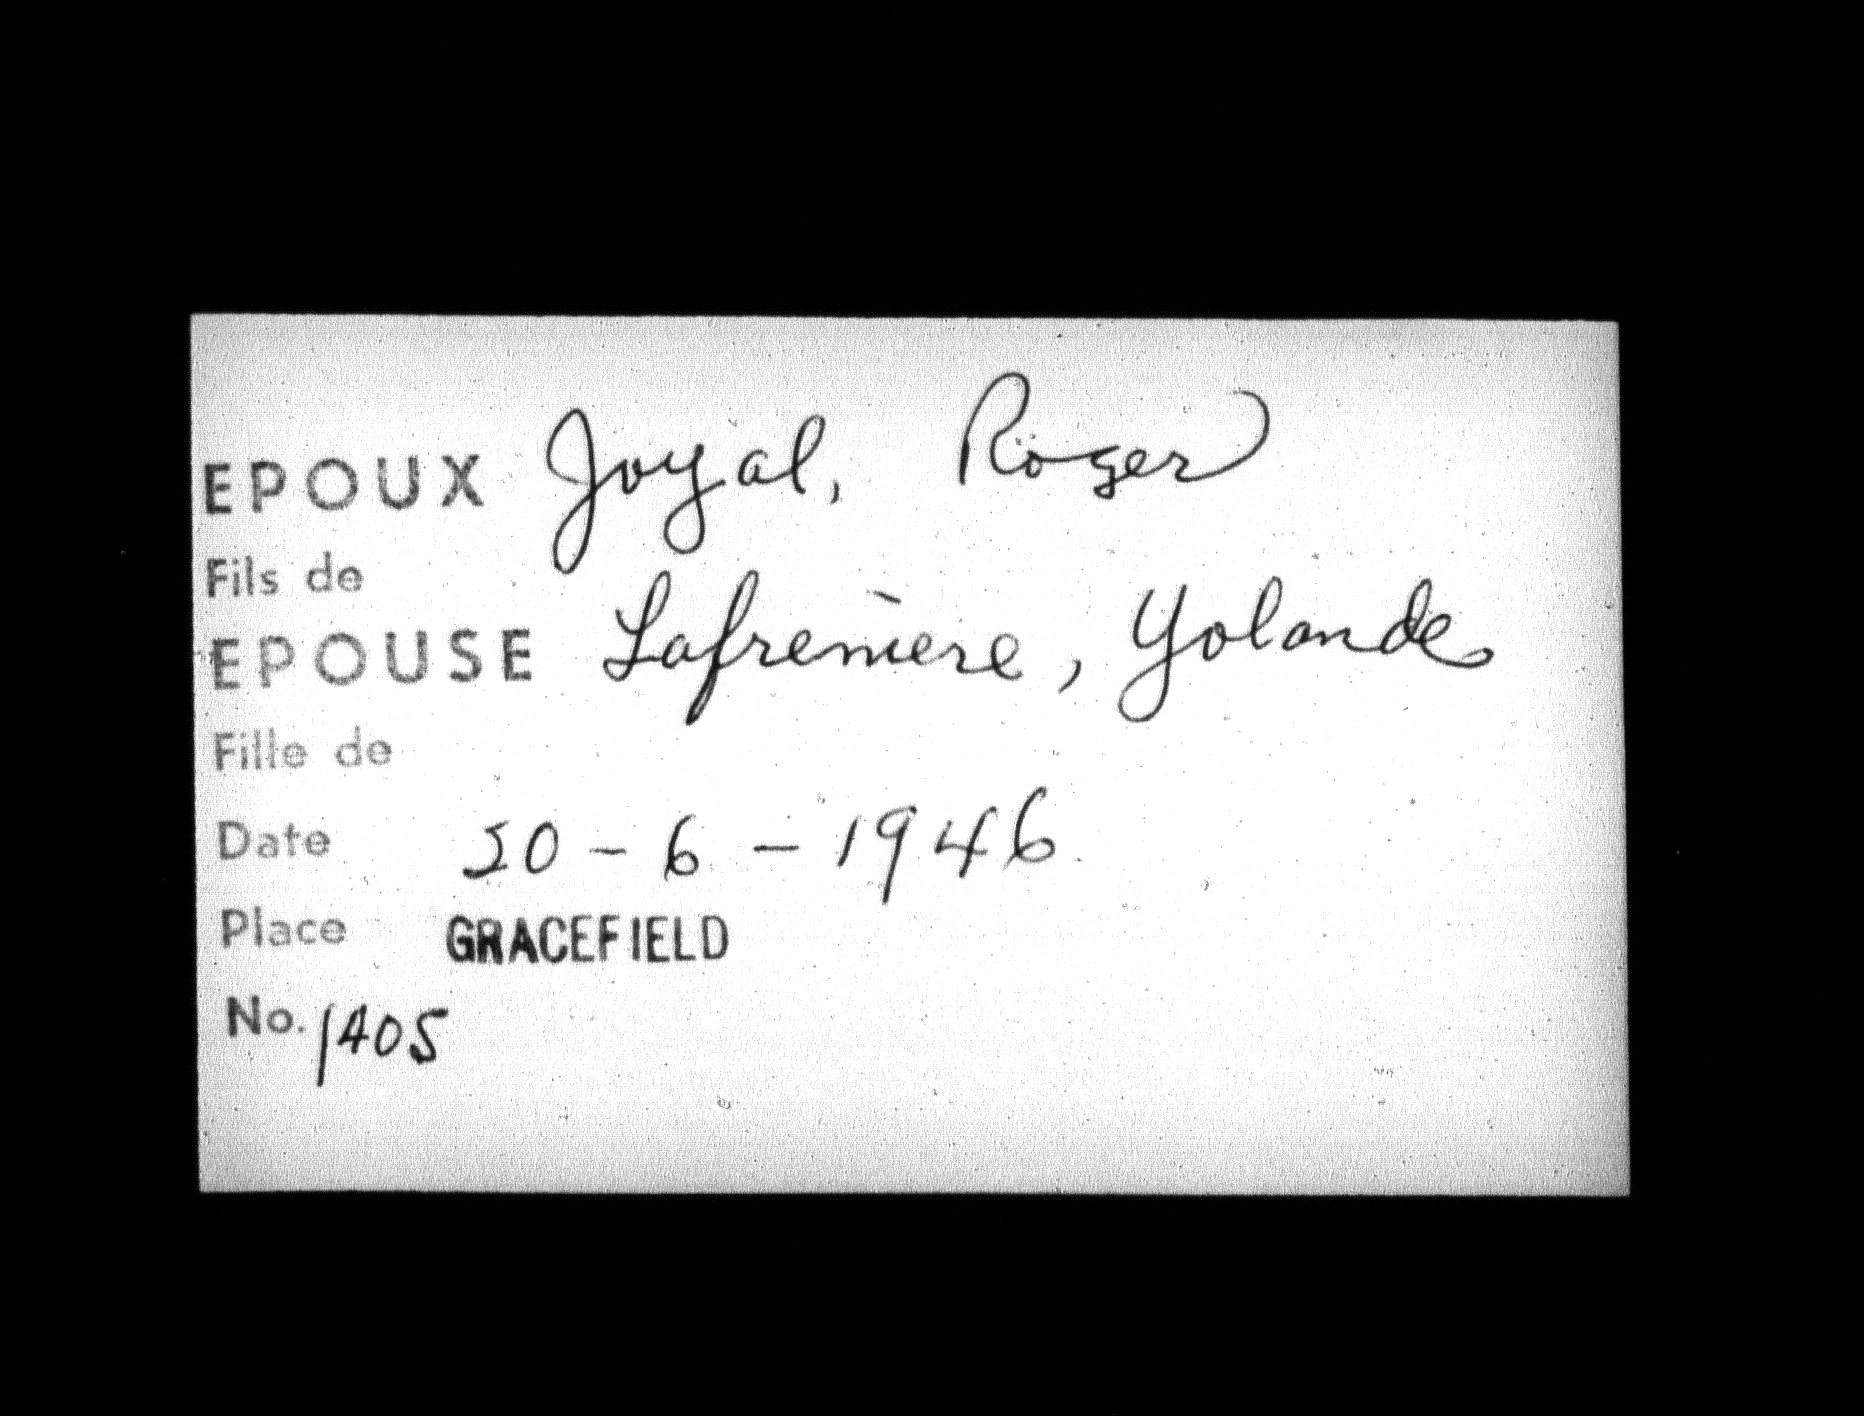 EPOUX Joyal, Roger
Fils de
EPOUSE Lafrenière, Yolande
Fille de
Date 20-6-1946
Place GRACEFIELD
No. 1405